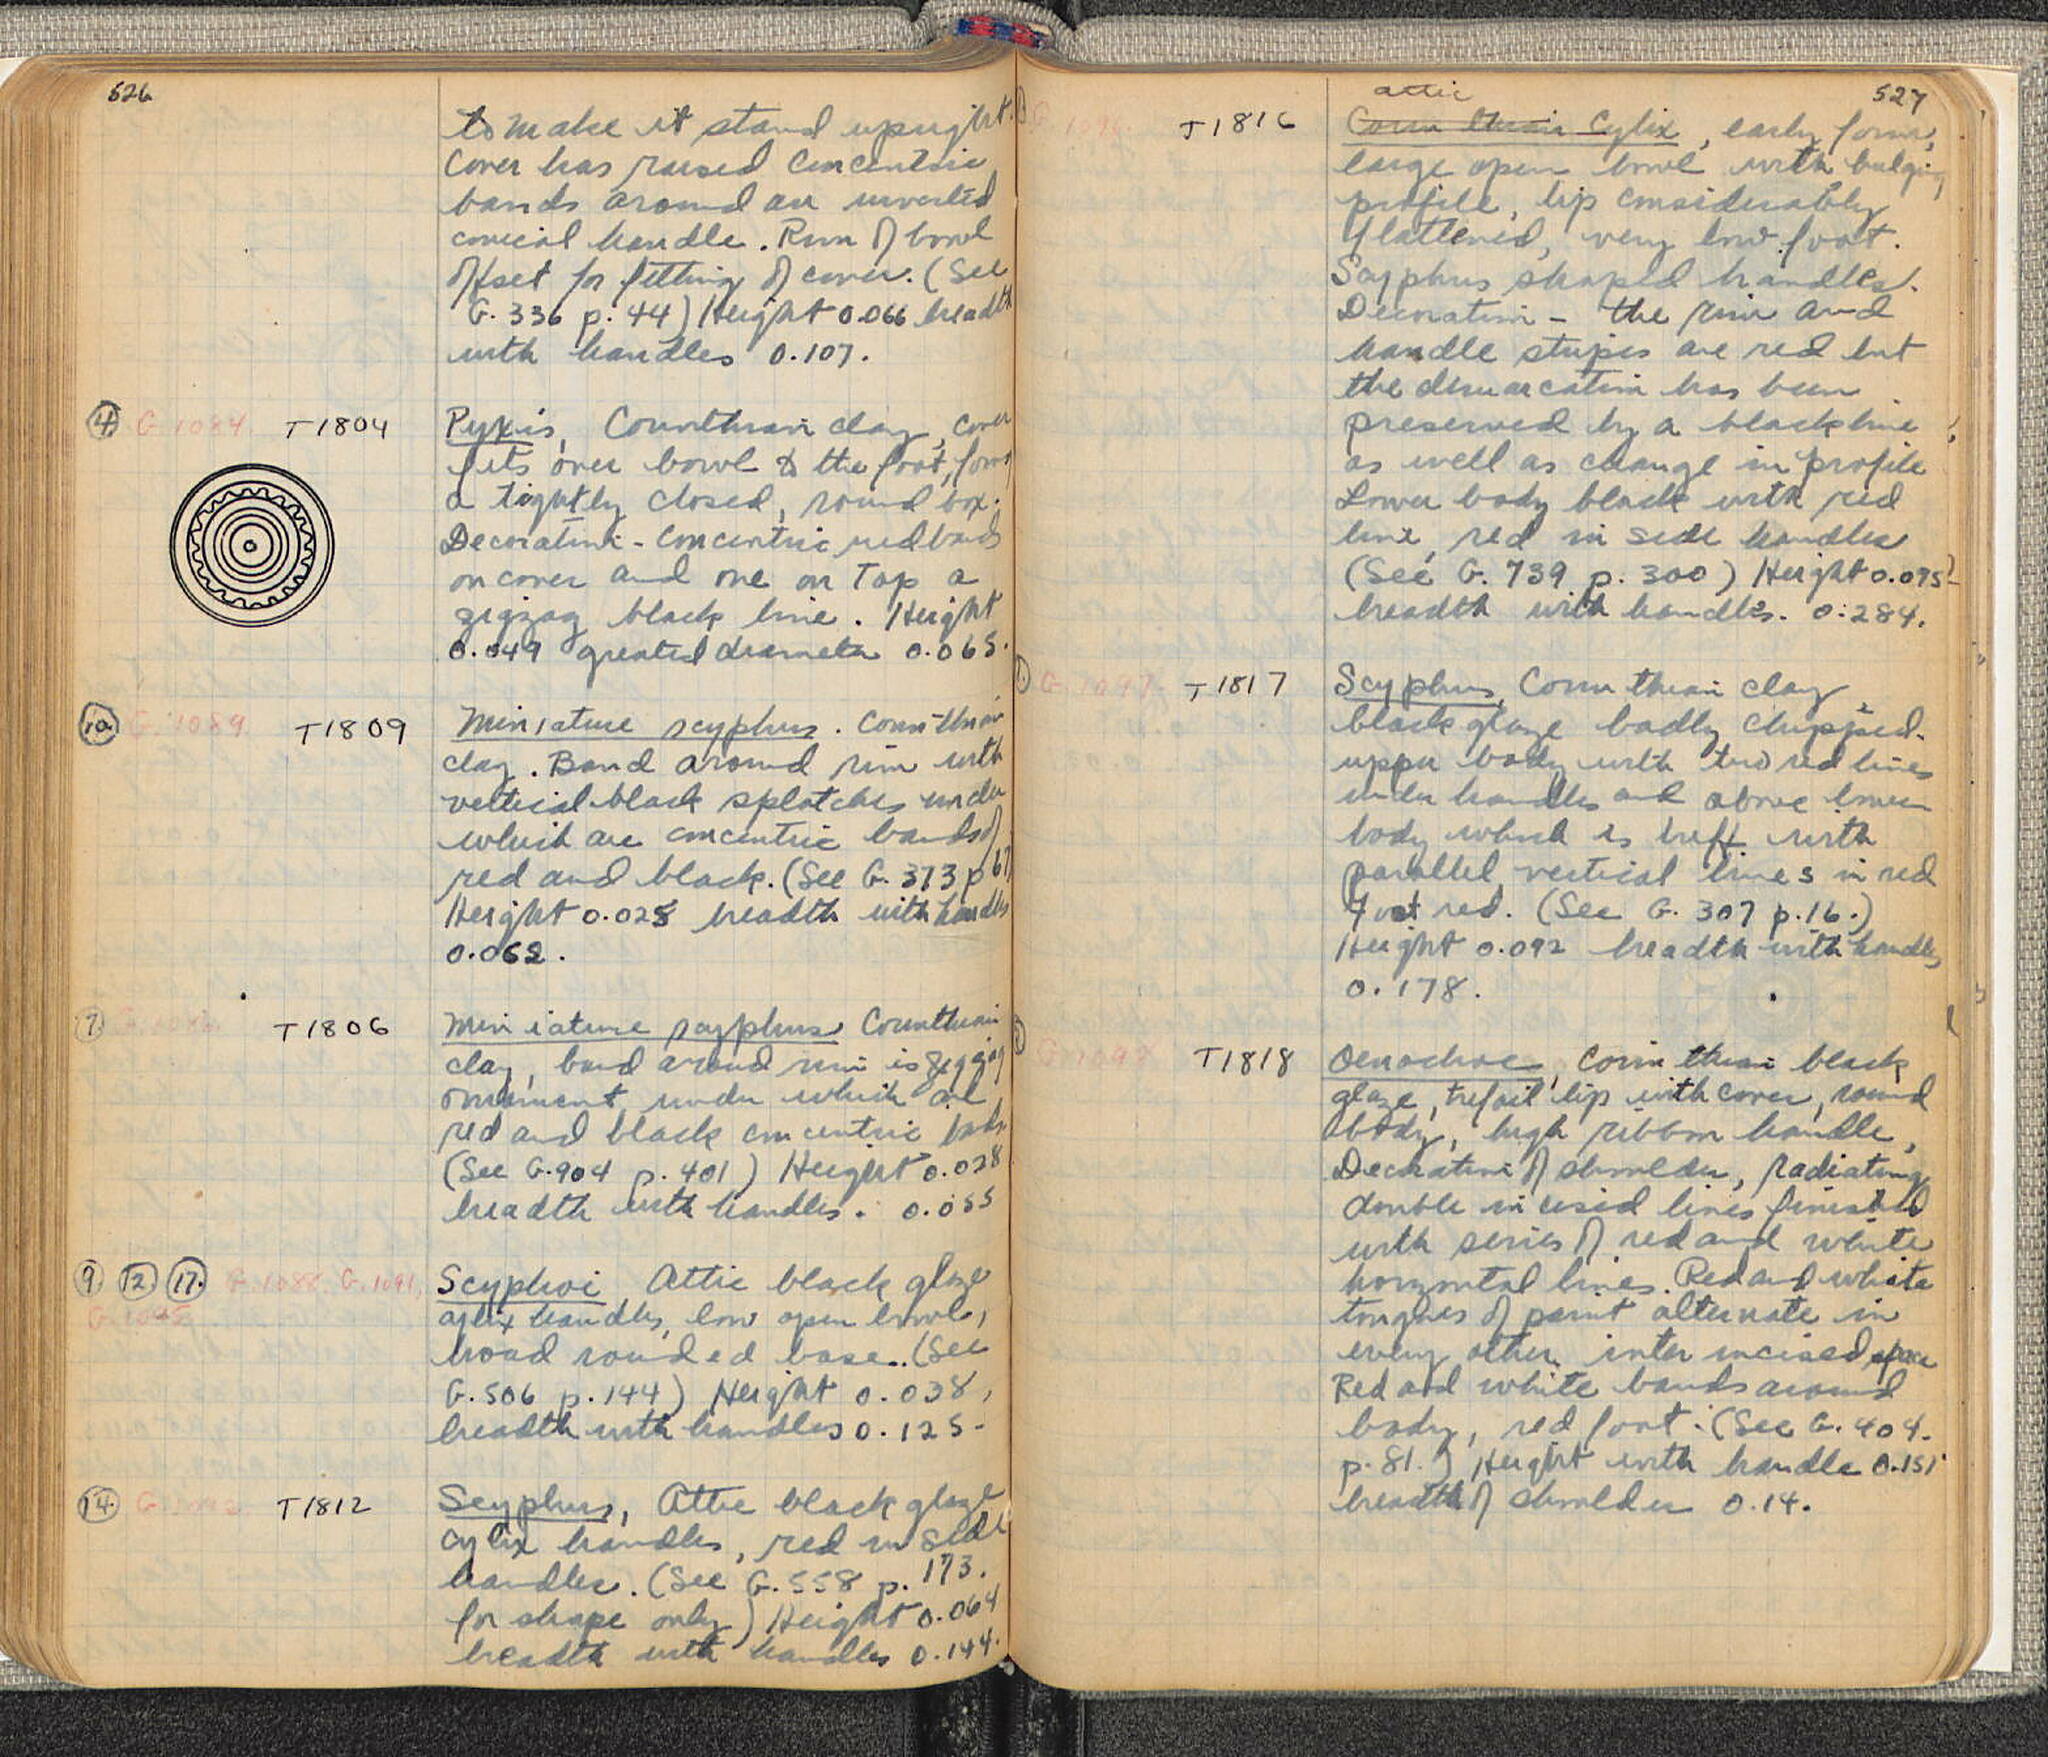 526
to make it stand upright.
Cover has raised concentric
bands around an inverted
conical handle. Rim of bowl
offset for fitting of cover. (See
G. 336 p. 44) Height 0.066 breadth
with handles 0.107.
4. G. 1084 T1804 Pyxis, Corinthian clay, cover
fits over bowl to the foot, forms
a tightly closed, round box.
Decoration - concentric red bands
on cover and one on Top a
zigzag black line. Height
0.049 greatest diameter 0.065.
10. G. 1089 T1809 Miniature scyphus. Corinthian
clay. Band around rim with
vertical black splotches under
which are concentric bands of
red and black. (See G. 373 p 67)
Height 0.028 breadth with handles
0.062.
7. T1806 Miniature scyphus Corinthian
clay, band around rim is zigzag
ornament under which are
red and black concentric bands.
(See G. 904 p. 401) Height 0.028
breadth with handles. 0.055
9. 12. 17. G. 1088. G. 1091, Scyphoi, Attic black glaze
G. 1095 cylix handles, low open bowl,
broad rounded base. (See
G. 506 p. 144) Height 0.038,
breadth with handles 0.125-
14. G. 1093 T1812 Scyphus, Attic black glaze
cylix handles, red in side
handles. (See G. 558 p. 173.
for shape only) Height 0.064
breadth with handles 0.144.
527
attic
G. 1096. T1816 Corinthian Cylix, early form,
large open bowl with bulging
profile, lip considerably
flattened, very low foot.
Scyphus shaped handles.
Decoration - the rim and
handle stripes are red but
the demarcation has been
preserved by a black line
as well as change in profile
Lower body black with red
line, red in side handles
(See G. 739 p. 300) Height 0.095
breadth with handles. 0.284.
G. 1097. T1817 Scyphus, Corinthian clay,
black glaze badly chipped.
upper body with two red lines
under handles and above lower
body which is buff with
parallel vertical lines in red
Foot red. (See G. 307 p. 16.)
Height 0.092 breadth with handles
0.178.
G. 1098 T1818 Oenochoe, Corinthian black
glaze, trefoil lip with cover, round
body, high ribbon handle,
Decoration of shoulder, radiating
double incised lines finished
with series of red and white
horizontal lines. Red and white
tongues of paint alternate in
every other inter incised space
Red and white bands around
body, red foot. (See G. 404.
p. 81.) Height with handle 0.151
breadth of shoulder 0.14.